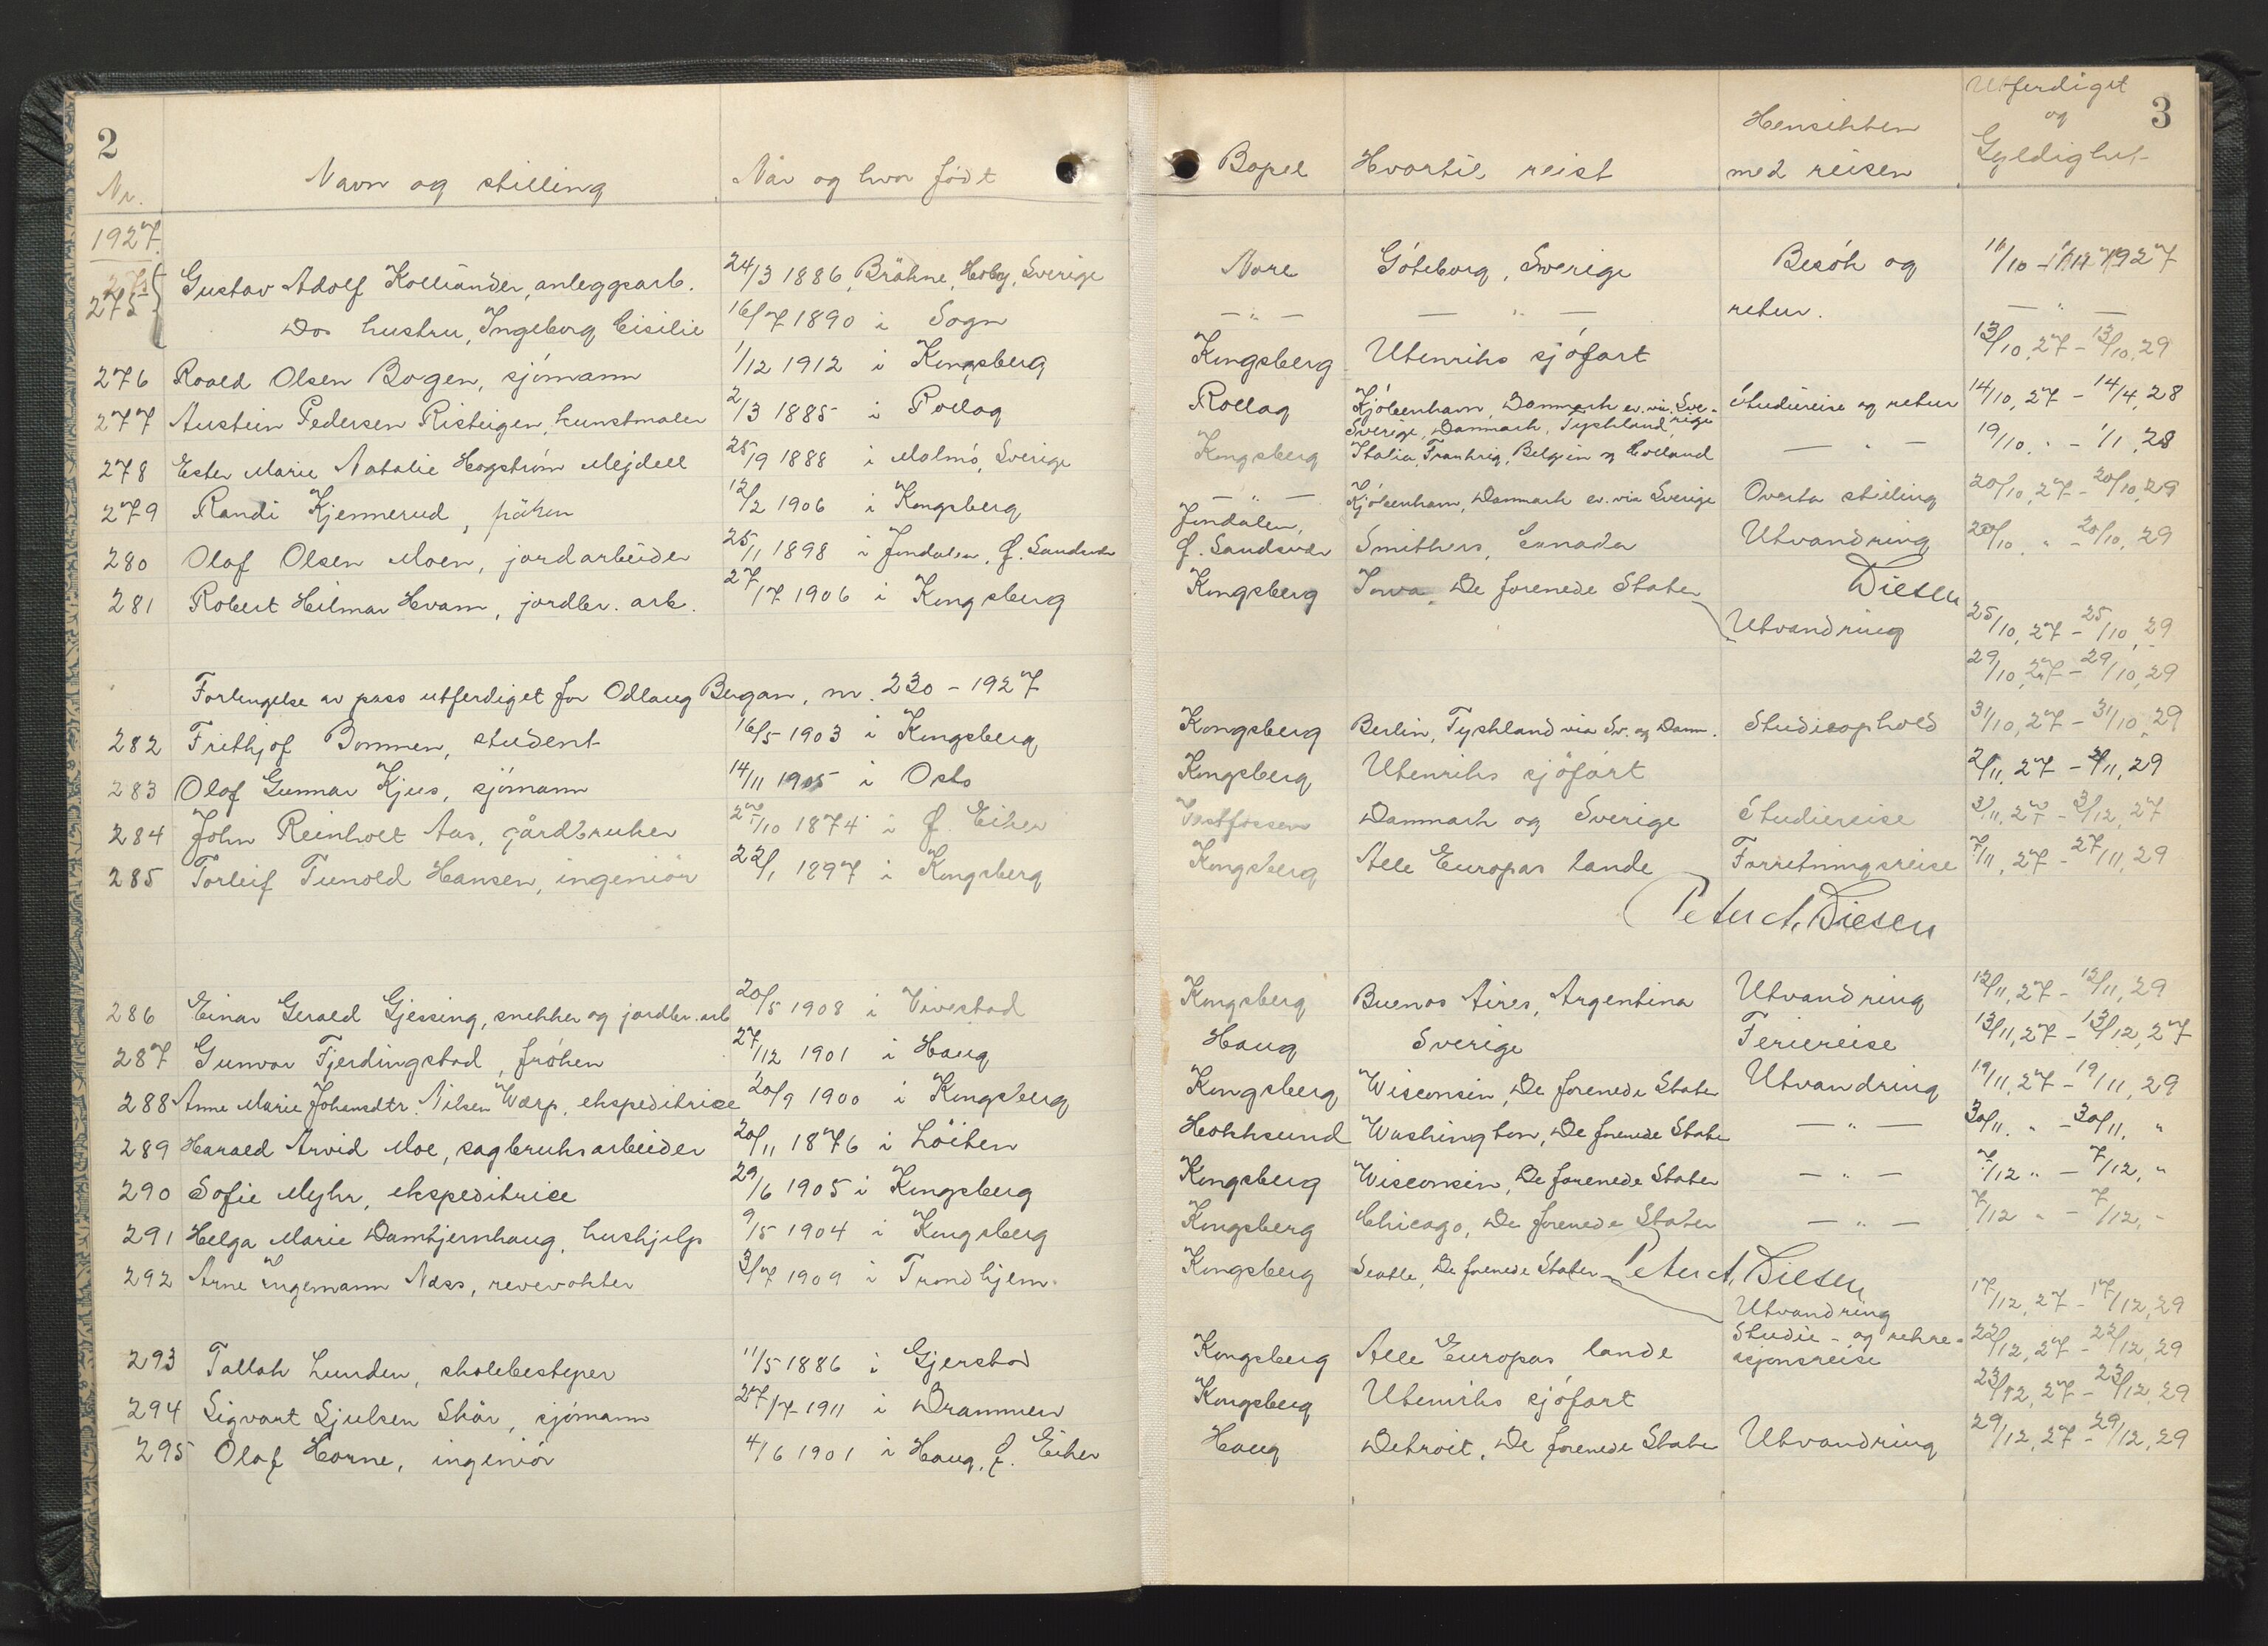 2
Nr.
Navn og stilling
Når og hvor født
1927.
275
Gustav Adolf Kolliander, anleggsarb.
24/3 1886, Bråhne, Hoby, Sverige
Dos hustru, Ingeborg Cisilie
16/7 1890 i Sogn
276 Roald Olsen Bogen, sjómann
1/12 1912 i Kongsberg
277 Austein Pedersen Risteigen, kunstmaler
2/3 1885 i Rollag
278 Ester Marie Natalie Hogstrøm Mejdell
25/9 1888 i Malmö, Sverige
279 Randi Kjennerud, fröken
12/2 1906 i Kongsberg
280 Olaf Olsen Moen, jordarbeider
25/11 1898 i Jondalen, Ø. Sandsvær
281 Robert Hilmar Hvam, jordbr. arb.
27/7 1906 i Kongsberg
Forlengelse av pass utferdiget for Odlaug Bergan, nr. 230 - 1927
282 Frithjof Bommen, student
16/5 1903 i Kongsberg
283 Olaf Gunnar Kjus, sjómann
14/11 1905 i Oslo
284 John Reinholt Aas, gårdbruker
27/10 1874 i Ø. Eiker
285 Torleif Tunold Hansen, ingeniør
22/1 1897 i Kongsberg
286 Einar Gerald Gjessing, snekker og jordbr. arb
20/5 1908 i Vivestad
287 Gunvor Fjerdingstad, fróken
27/12 1901 i Haug
288 Anne Marie Johansdtr. Nilsen Wærp, ekspeditrise
20/9 1900 i Kongsberg
289 Harald Arvid Moe, sagbruksarbeider
20/11 1876 i Löiten
290 Sofie Myhr, ekspeditrise
29/6 1905 i Kongsberg
291 Helga Marie Damtjernhaug, hushjelp
9/5 1904 i Kongsberg
292 Arne Ingemann Næss, revevokter
3/7 1909 i Trondhjem.
293 Tallak Lunden, skolebestyrer
11/5 1886 i Gjerstad
294 Sigvart Sjulsen Skår, sjómann
27/7 1911 i Drammen
295 Olaf Horne, ingeniör
4/6 1901 i Haug, Ø. Eiker
3
Bopel
Hvortil reist
Hensikten
med reisen
Utferdiget
og
Gyldighet
Nore Góteborg, Sverige Besók og 11/10 - 1927
— " — — " — retur. — " —
Kongsberg Utenriks sjófart 13/10, 27 - 13/10, 29
Rollag Kjóbenhavn, Danmark ev. via Sve-
rige Studiereise og retur 14/10, 27 - 14/4, 28
Sverige, Danmark, Tyskland,
Kongsberg Italia, Frankrig, Belgien og Holland — " — 19/10 " - 1/1, 28
— " — Kjóbenhavn, Danmark ev. via Sverige Overta stilling 20/10, 27 - 20/10, 29
Jondalen,
Ø. Sandsvær Smithers, Canada Utvandring 20/10, " - 20/10, 29
Kongsberg Iowa, De forenede Stater Diesen
Utvandring 25/10, 27 - 25/10, 29
29/10, 27 - 29/10, 29
Kongsberg Berlin, Tyskland via Sv. og Danm. Studieophold 31/10, 27 - 31/10, 29
Kongsberg Utenriks sjöfart 2/11, 27 - 2/11, 29
Vestfossen Danmark og Sverige Studiereise 3/11, 27 - 3/12, 27
Kongsberg Alle Europas lande Forretningsreise 7/11, 27 - 27/11, 29
Peter A. Diesen
Kongsberg Buenos Aires, Argentina Utvandring 12/11, 27 - 12/11, 29
Haug Sverige Feriereise 13/11, 27 - 13/12, 27
Kongsberg Wisconsin, De forenede Stater Utvandring 19/11, 27 - 19/11, 29
Hokksund Washington, De forenede Stater — " — 30/11, " - 30/11, "
Kongsberg Wisconsin, De forenede Stater — " — 7/12 " - 7/12, "
Kongsberg Chicago, De forenede Stater — " — 7/12 " - 7/12, "
Kongsberg Seatle, De forenede Stater Peter A. Diesen
Utvandring 17/12, 27 - 17/12, 29
Kongsberg Alle Europas lande Studie- og rekre-
asjonsreise 22/12, 27 - 22/12, 29
Kongsberg Utenriks sjófart 23/12, 27 - 23/12, 29
Haug Detroit, De forenede Stater Utvandring 29/12, 27 - 29/12, 29